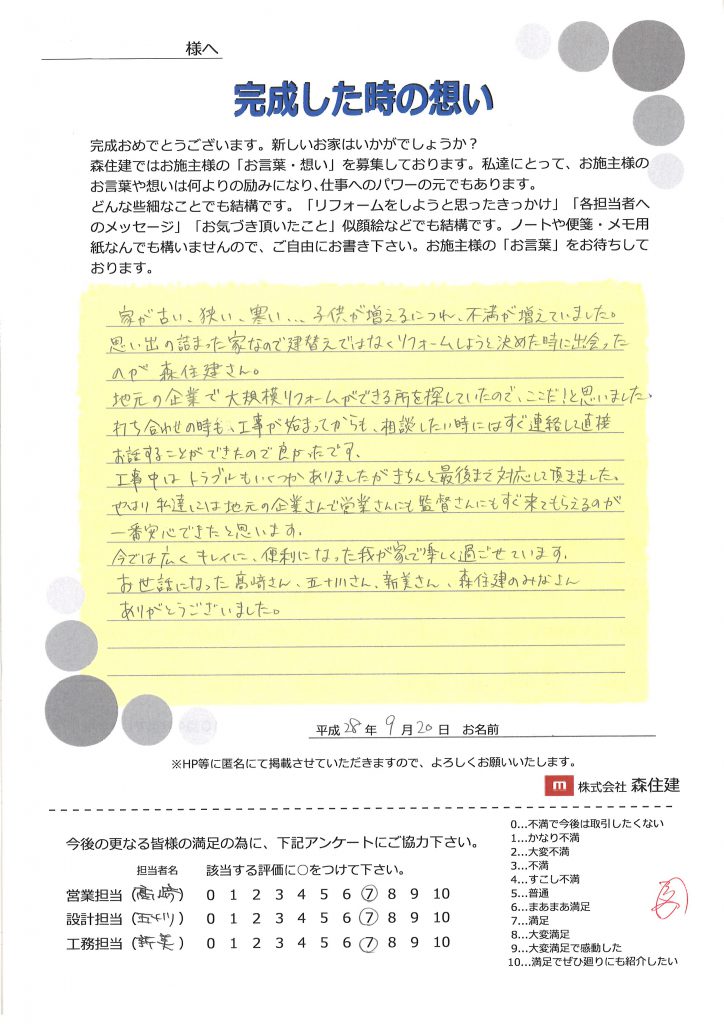 様へ
完成した時の想い
完成おめでとうございます。新しいお家はいかがでしょうか？
森住建ではお施主様の「お言葉・想い」を募集しております。私達にとって、お施主様の
お言葉や想いは何よりの励みになり、仕事へのパワーの元でもあります。
どんな些細なことでも結構です。「リフォームをしようと思ったきっかけ」「各担当者へ
のメッセージ」「お気づき頂いたこと」似顔絵などでも結構です。ノートや便箋・メモ用
紙なんでも構いませんので、ご自由にお書き下さい。お施主様の「お言葉」をお待ちして
おります。
家が古い、狭い、寒い、、、子供が増えるにつれ、不満が増えていました。
思い出の詰まった家なので建替えではなくリフォームしようと決めた時に出会った
のが 森住建さん。
地元の企業で大規模リフォームができる所を探していたので、ここだ！と思いました。
打ち合わせの時も、工事が始まってからも、相談したい時にはすぐ連絡して直接
お話することができたので良かったです。
工事中はトラブルもいくつかありましたがきちんと最後まで対応して頂きました。
やはり私達には地元の企業さんで営業さんにも監督さんにもすぐ来てもらえるのが
一番安心できたと思います。
今では広くキレイに、便利になった我が家で楽しく過ごせています。
お世話になった高崎さん、五十川さん、新美さん、森住建のみなさん
ありがとうございました。
平成 28 年 9 月 20 日 お名前
※HP等に匿名にて掲載させていただきますので、よろしくお願いいたします。
m 株式会社 森住建
今後の更なる皆様の満足の為に、下記アンケートにご協力下さい。
担当者名 該当する評価に○をつけて下さい。
営業担当（高崎） 0 1 2 3 4 5 6 ⑦ 8 9 10
設計担当（五十川） 0 1 2 3 4 5 6 ⑦ 8 9 10
工務担当（新美） 0 1 2 3 4 5 6 ⑦ 8 9 10
0…不満で今後は取引したくない
1…かなり不満
2…大変不満
3…不満
4…すこし不満
5…普通
6…まあまあ満足
7…満足
8…大変満足
9…大変満足で感動した
10…満足でぜひ廻りにも紹介したい